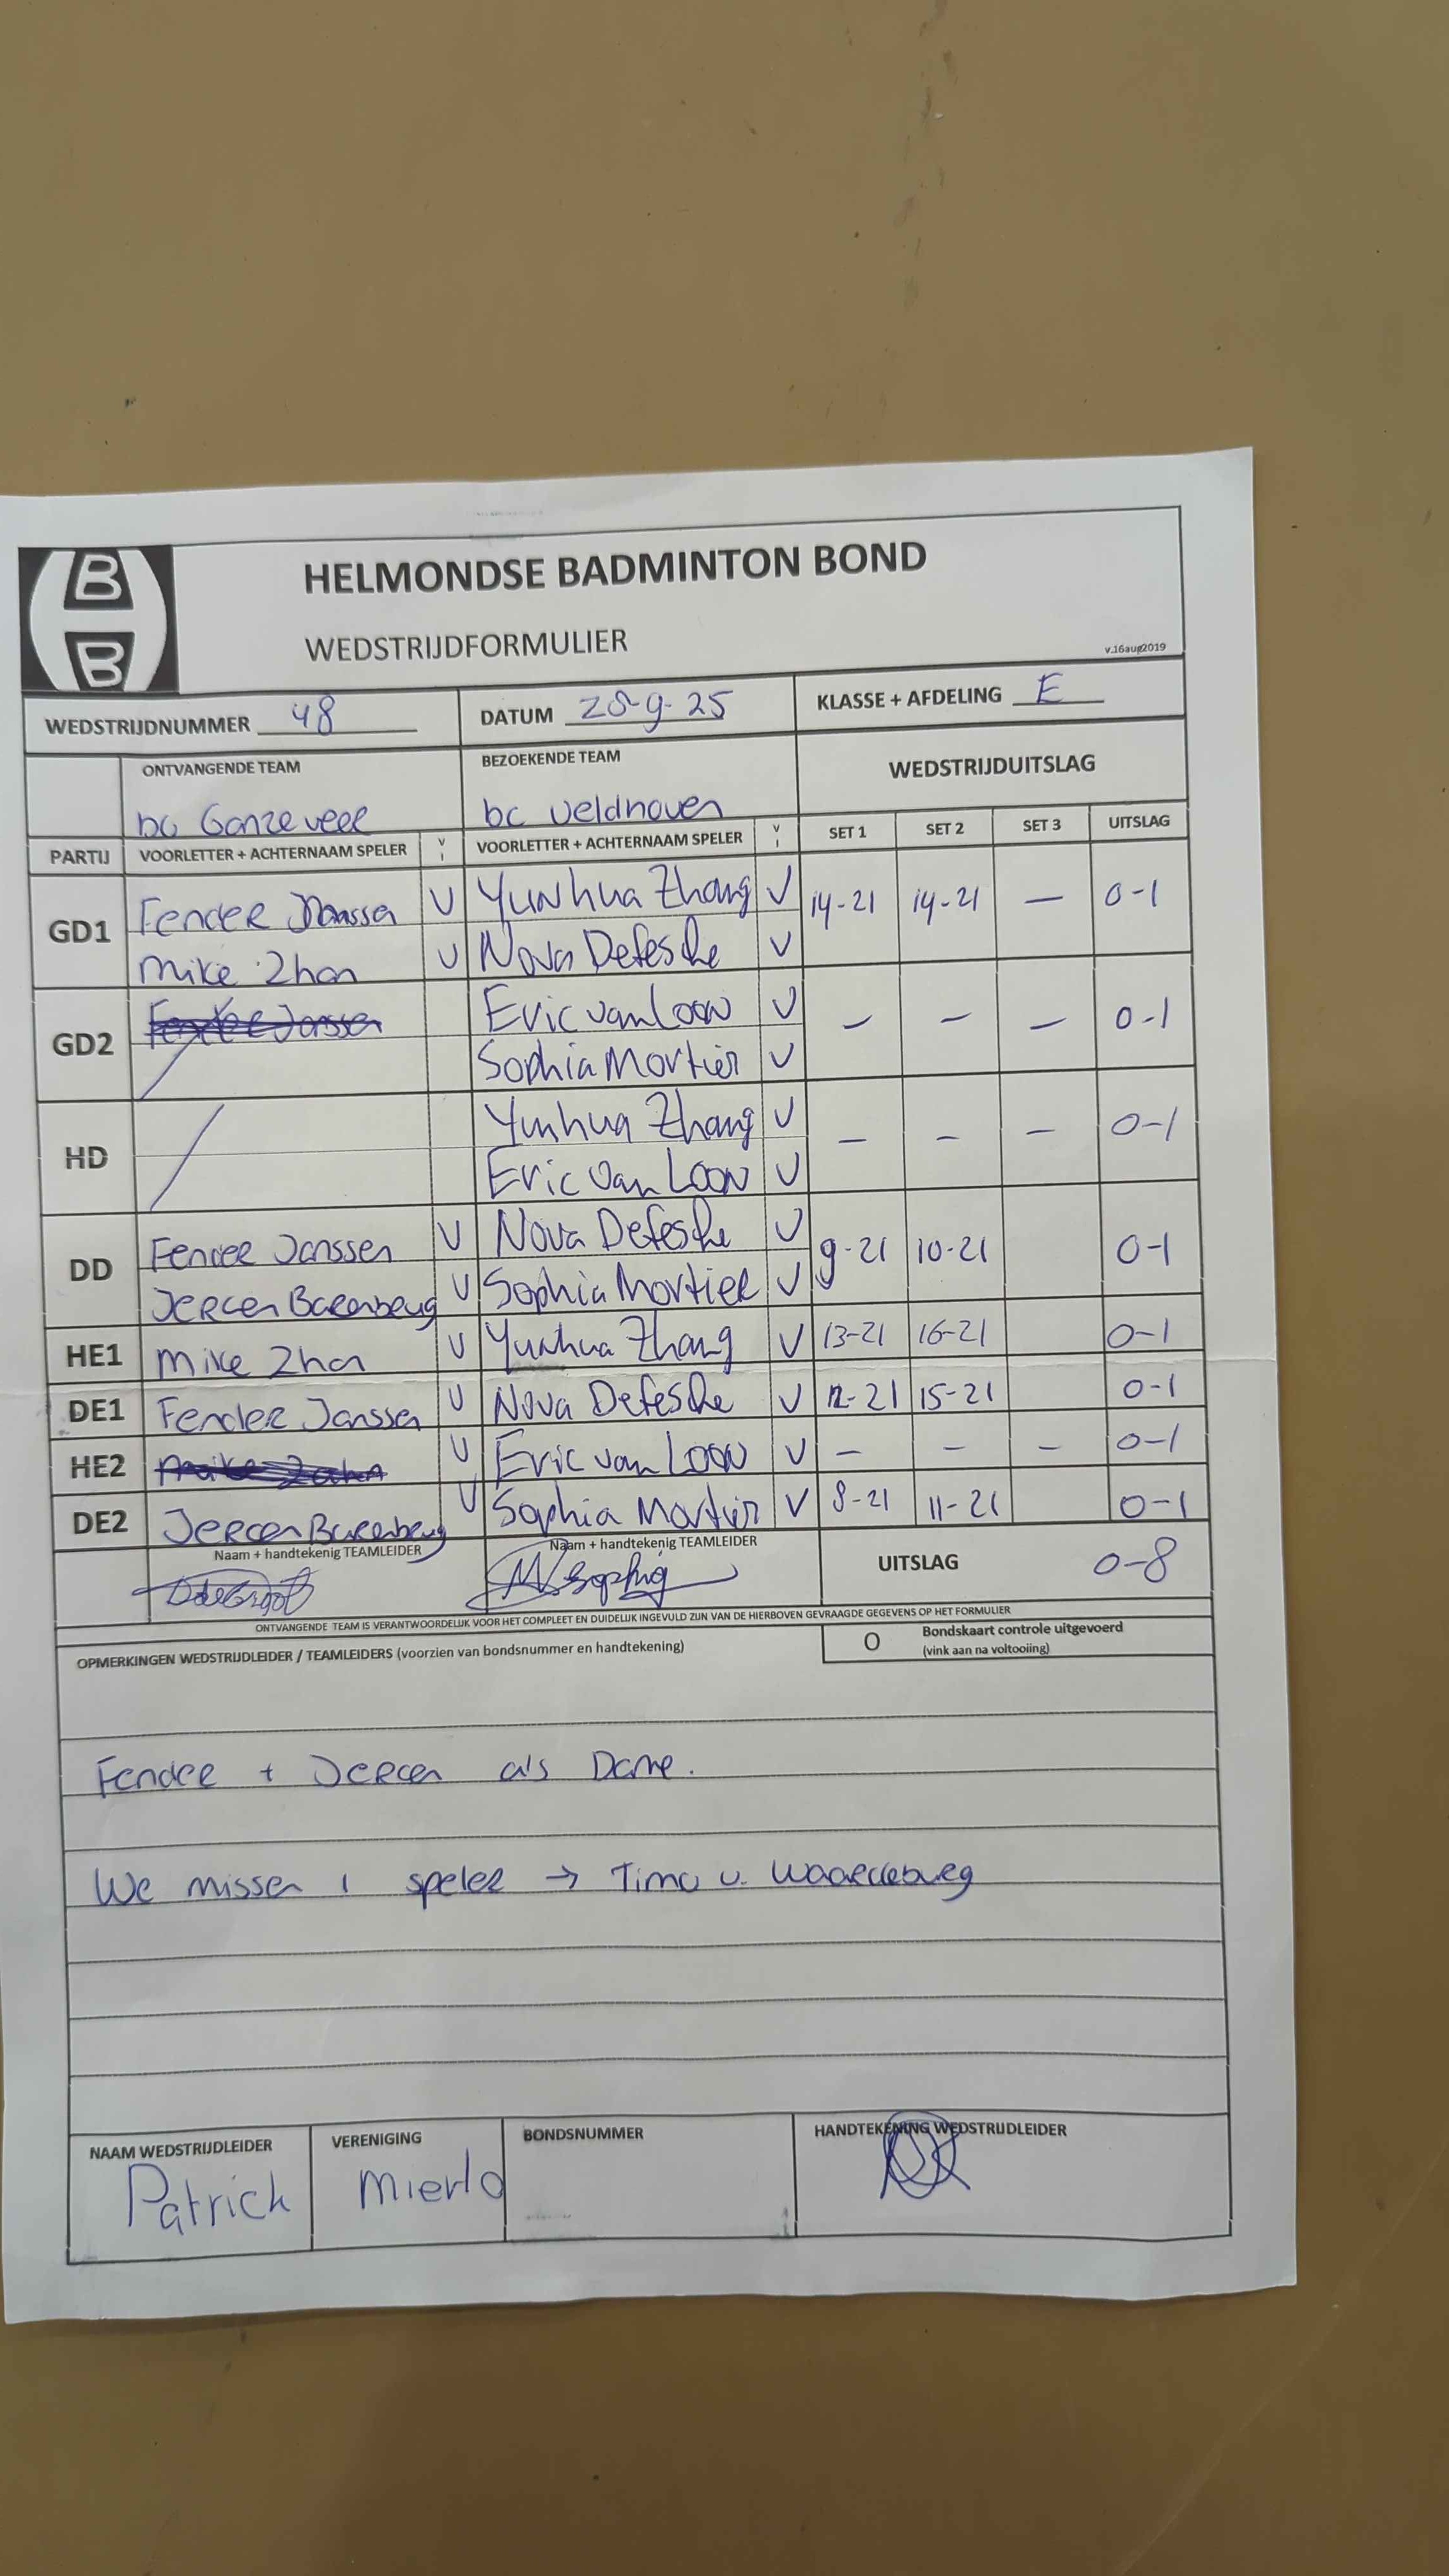 B
B
HELMONDSE BADMINTON BOND
WEDSTRIJDFORMULIER
v.16aug2019
WEDSTRIJDNUMMER 48 DATUM 28-9-25 KLASSE + AFDELING E
ONTVANGENDE TEAM BEZOEKENDE TEAM WEDSTRIJDUITSLAG
bc Ganzeveer bc veldhoven
PARTIJ VOORLETTER + ACHTERNAAM SPELER V I VOORLETTER + ACHTERNAAM SPELER V I SET 1 SET 2 SET 3 UITSLAG
GD1 Fender Janssen V Yunhua Zhang V 14-21 14-21 — 0-1
Mike Zhan V Nova Defesche V
GD2 Eric van Loon V — — — 0-1
Sophia Mortier V
HD Yunhua Zhang V — — — 0-1
Eric van Loon V
DD Fender Janssen V Nova Defesche V 9-21 10-21 0-1
Jeroen V Sophia Mortier V
HE1 Mike Zhan V Yunhua Zhang V 13-21 16-21 0-1
DE1 Fender Janssen V Nova Defesche V 12-21 15-21 0-1
HE2 V Eric van Loon V — — — 0-1
DE2 Jeroen V Sophia Mortier V 8-21 11-21 0-1
Naam + handtekenig TEAMLEIDER Naam + handtekenig TEAMLEIDER UITSLAG 0-8
Sophia
ONTVANGENDE TEAM IS VERANTWOORDELIJK VOOR HET COMPLEET EN DUIDELIJK INGEVULD ZIJN VAN DE HIERBOVEN GEVRAAGDE GEGEVENS OP HET FORMULIER
OPMERKINGEN WEDSTRIJDLEIDER / TEAMLEIDERS (voorzien van bondsnummer en handtekening) O Bondskaart controle uitgevoerd
(vink aan na voltooiing)
Fender + Jeroen als Dame.
We missen 1 speler → Timo v.
NAAM WEDSTRIJDLEIDER VERENIGING BONDSNUMMER HANDTEKENING WEDSTRIJDLEIDER
Patrick Mierlo